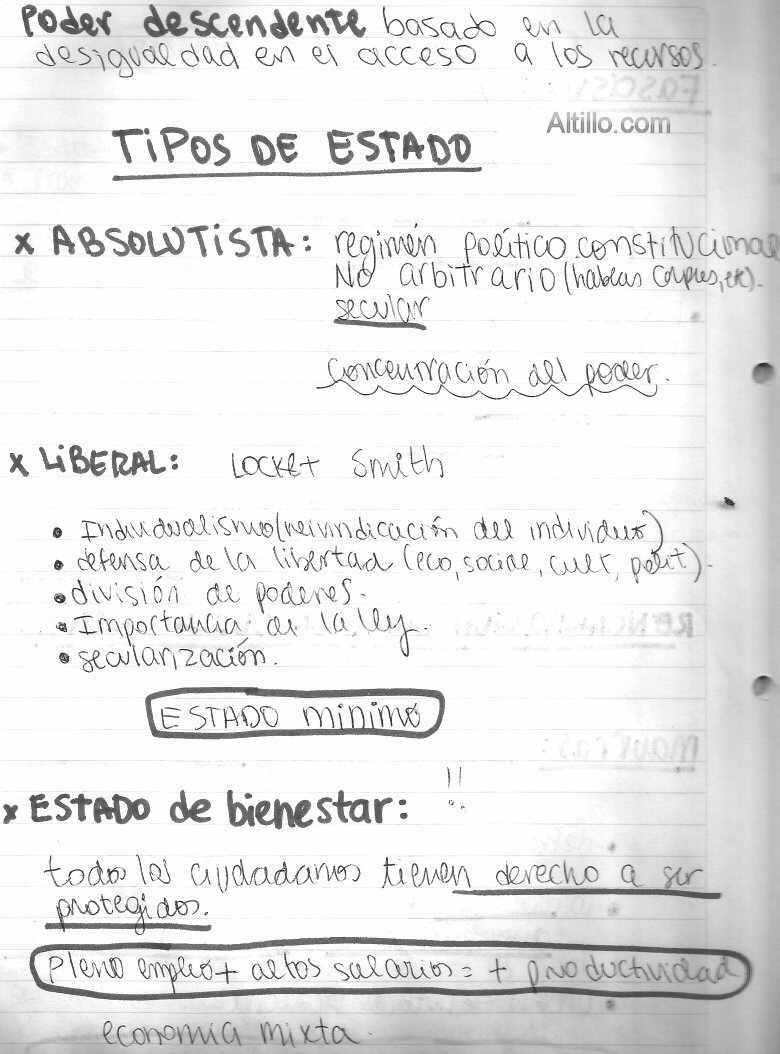 Poder descendente basado en la
desigualdad en el acceso a los recursos.
Altillo.com
TiPOS DE ESTADO
x ABSOLUTiSTA: regimén político constitucional
No arbitrario (habeas corpus, etc).
secular
Concentración del poder.
x LiBERAL: Locke + Smith
• Individualismo (reivindicación del individuo)
• defensa de la libertad (eco, social, cult, polit).
• división de poderes.
• Importancia de la ley.
• secularización.
ESTADO mínimo
x ESTADO de bienestar: !!
todos los ciudadanos tienen derecho a ser
protegidos.
Pleno empleo + altos salarios = + productividad
economía mixta.